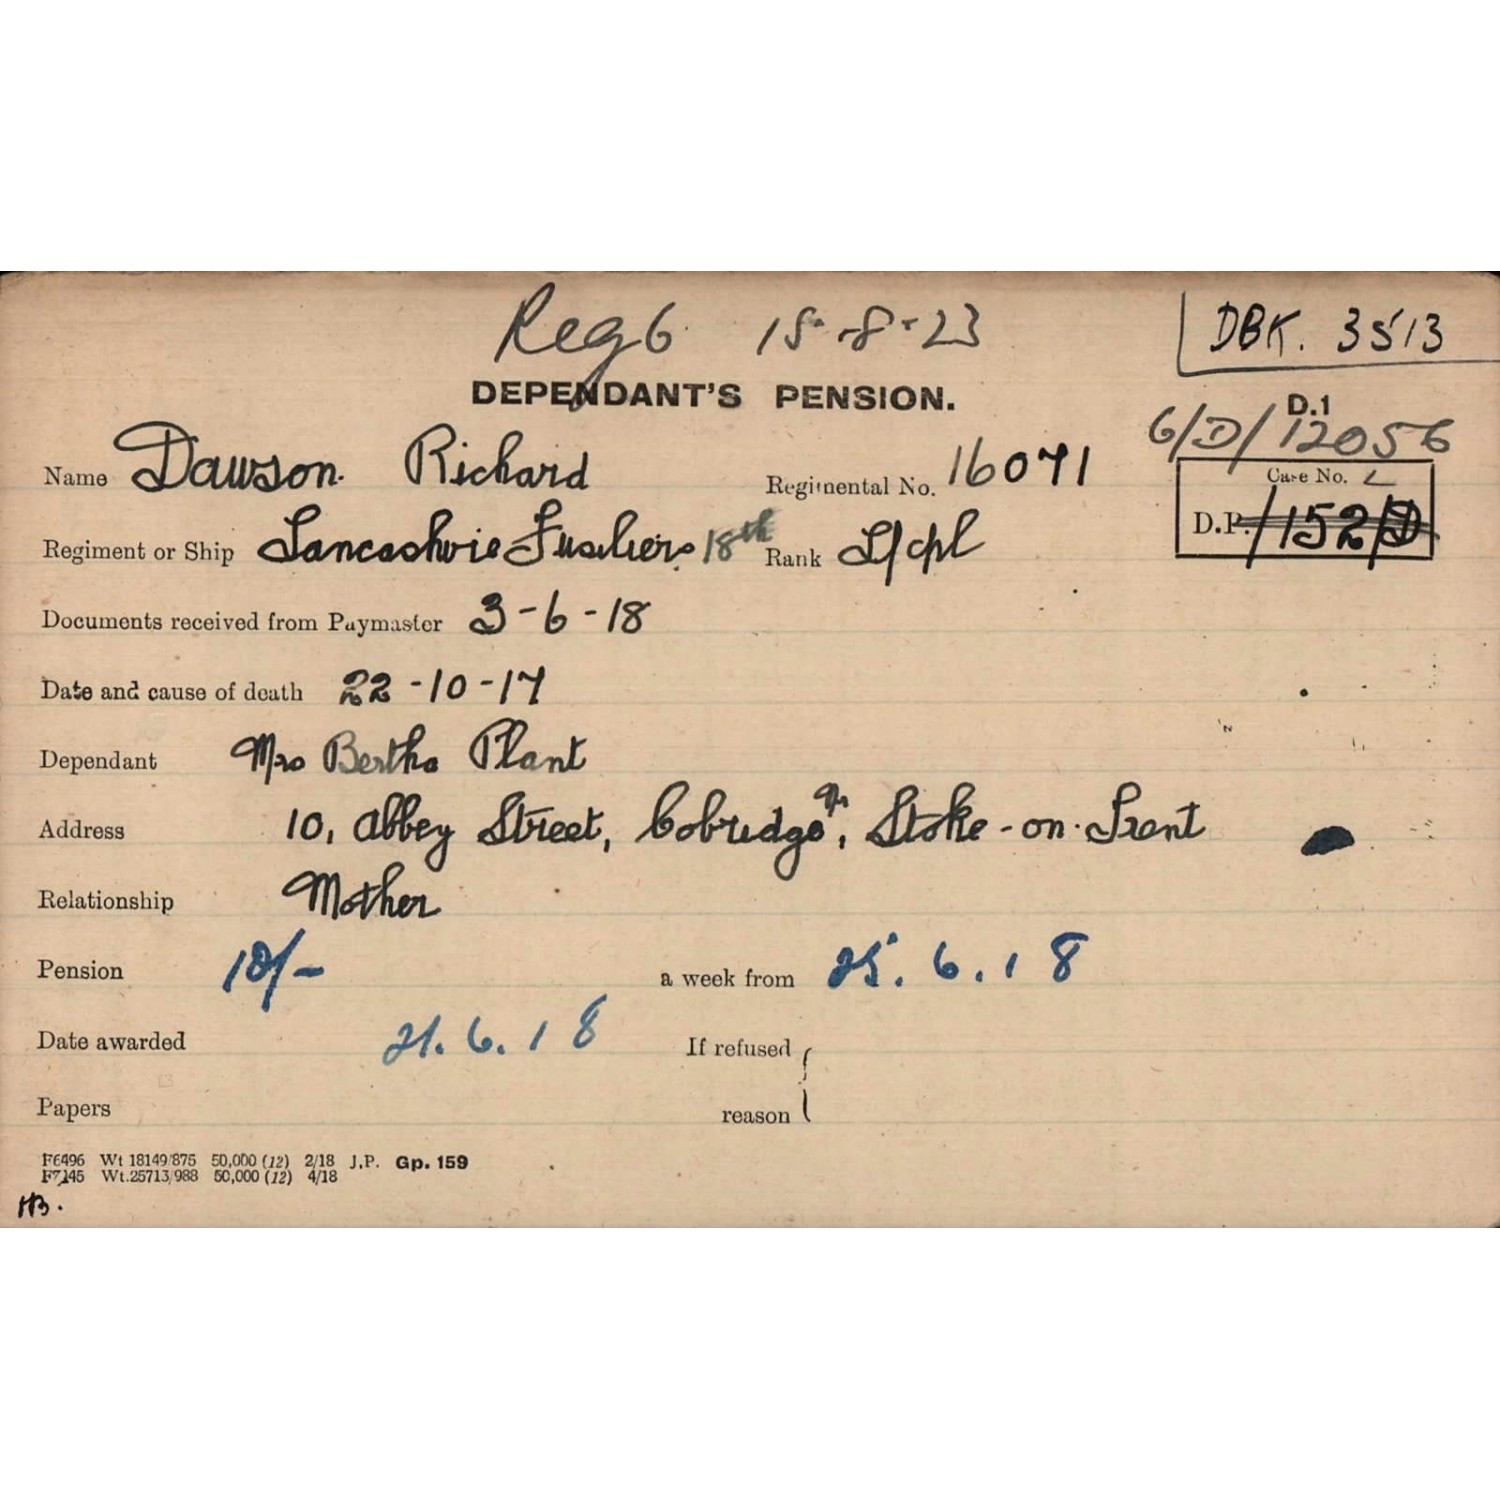 Reg 6 15-8-23
DBK. 3513
DEPENDANT'S PENSION.
D.1
6/D/12056
Name Dawson. Richard
Regimental No. 16071
Case No.
D.P. /152/D
Regiment or Ship Lancashire Fusiliers 18th
Rank L/cpl
Documents received from Paymaster 3-6-18
Date and cause of death 22-10-17
Dependant Mrs Bertha Plant
Address 10, Abbey Street, Cobridge, Stoke-on-Trent
Relationship Mother
Pension 10/-
a week from 25.6.18
Date awarded 21.6.18
If refused
Papers
reason
F6496 Wt 18149/875 50,000 (12) 2/18 J.P. Gp. 159
F7145 Wt.25713/988 50,000 (12) 4/18
HB.